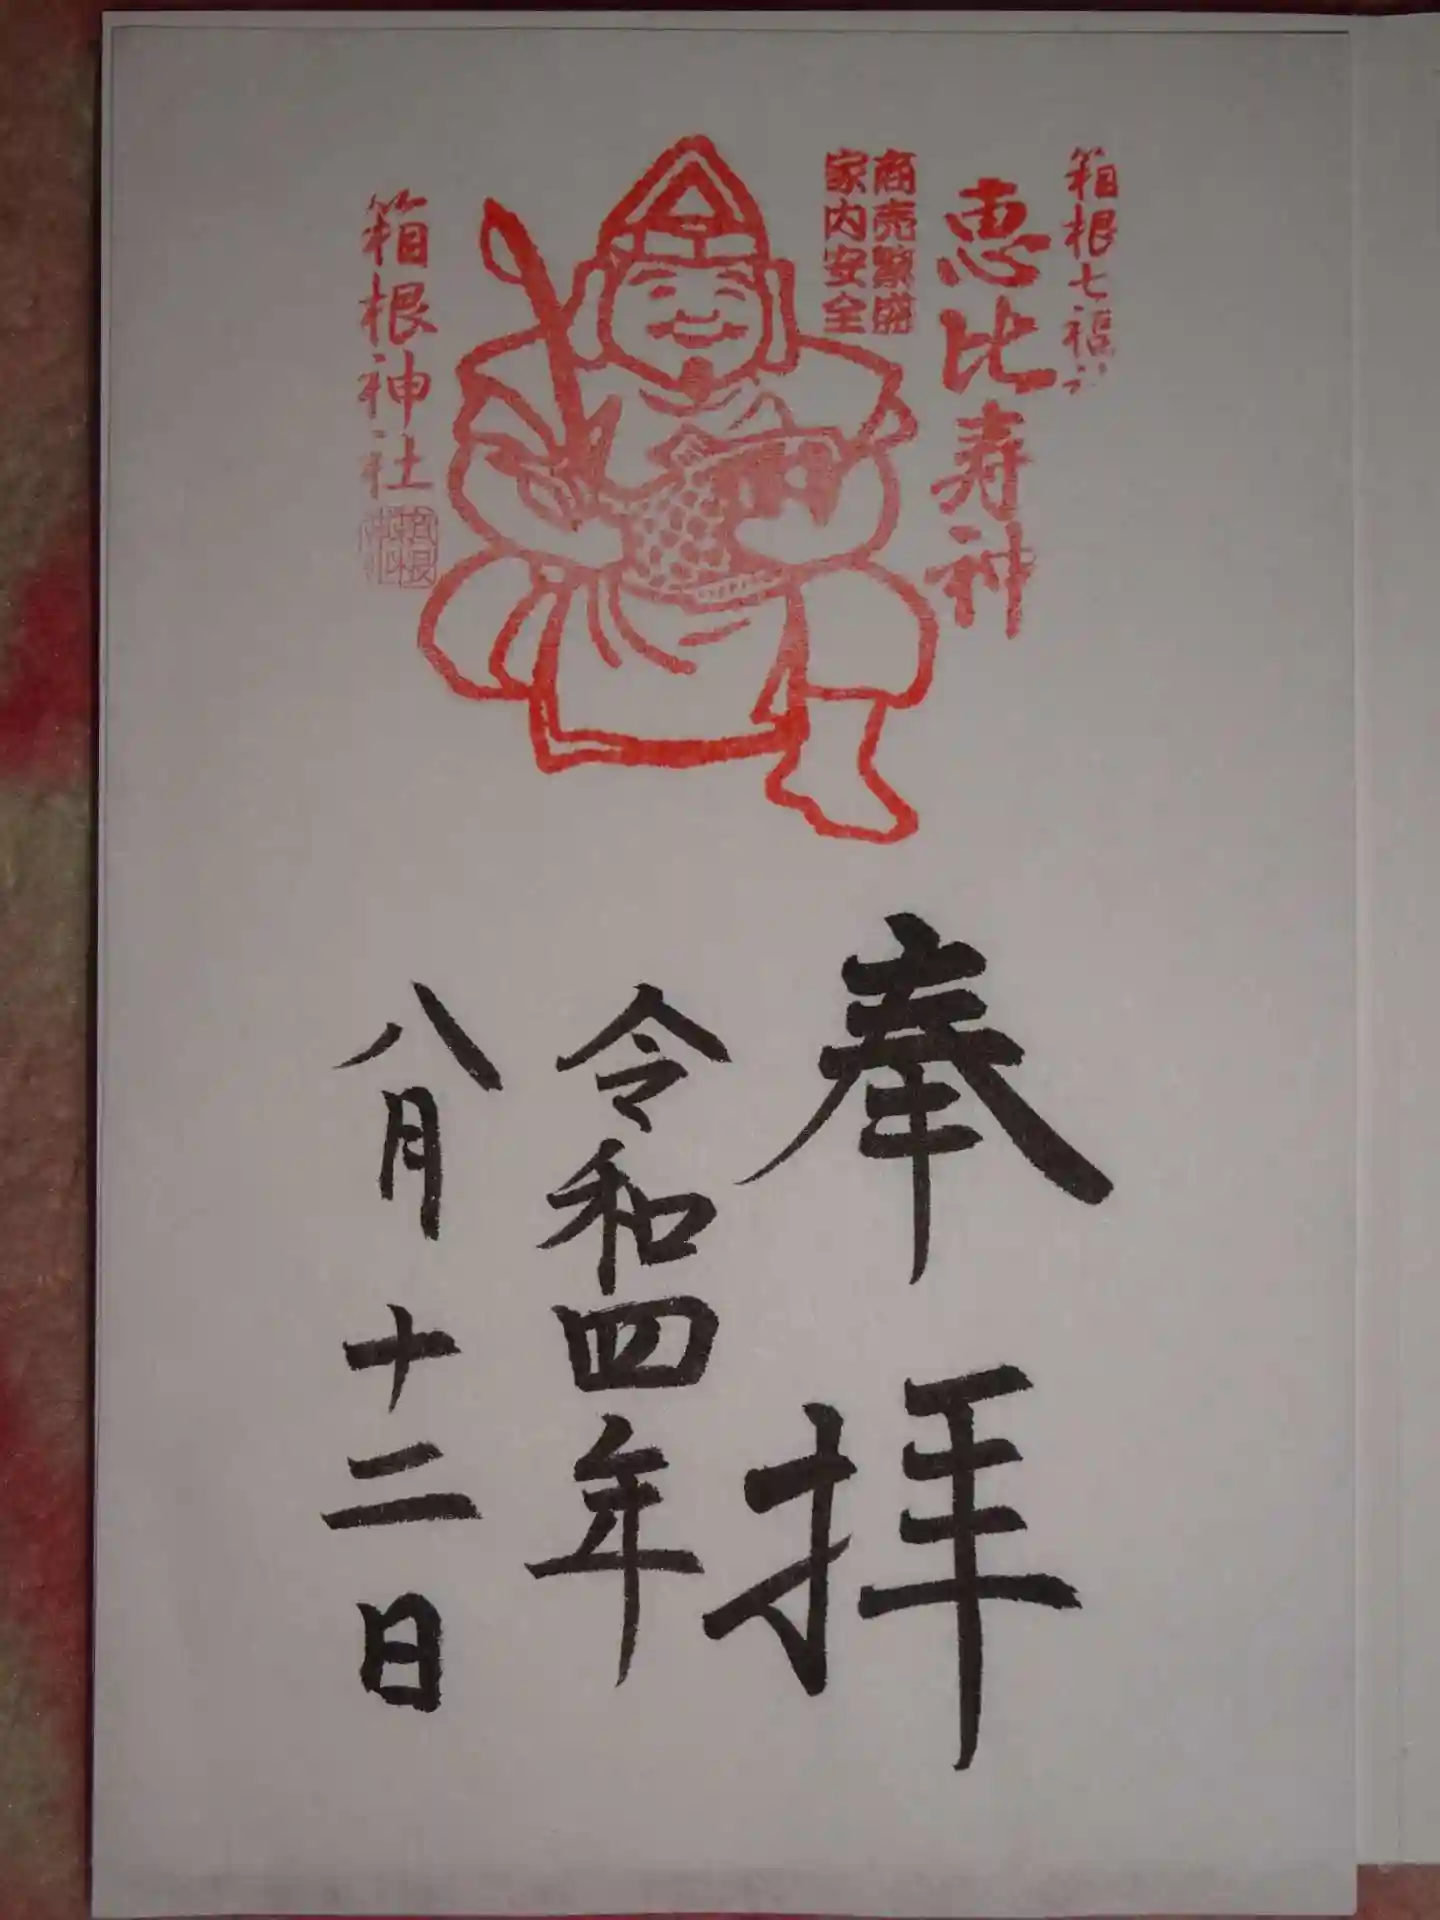 箱根七福
恵比寿神
商売繁盛
家内安全
箱根神社
奉拝
令和四年
八月十二日